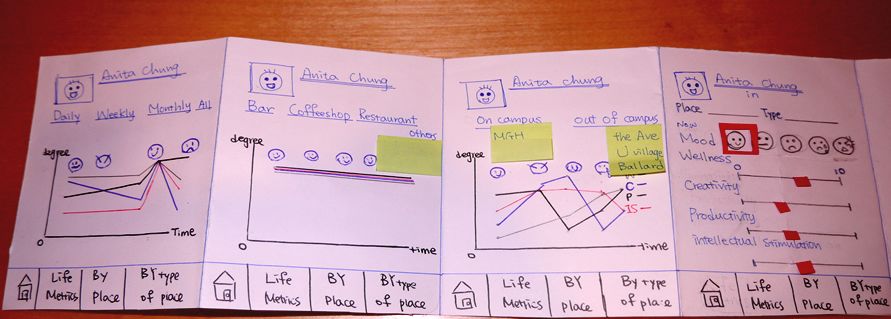 Anita Chung
Daily Weekly Monthly All
degree
0
Time
Life Metrics
BY Place
BY type of place
Anita Chung
Bar Coffeeshop Restaurant
others
degree
0
time
Life Metrics
BY Place
BY type of place
Anita Chung
On campus out of campus
MGH
the Ave
U village
Ballard
degree
C
P
IS
0
time
Life Metrics
BY Place
By type of place
Anita Chung
in
Place Type
Now
Mood
Wellness
0 10
Creativity
Productivity
intellectual stimulation
Life Metrics
BY Place
BY type of place